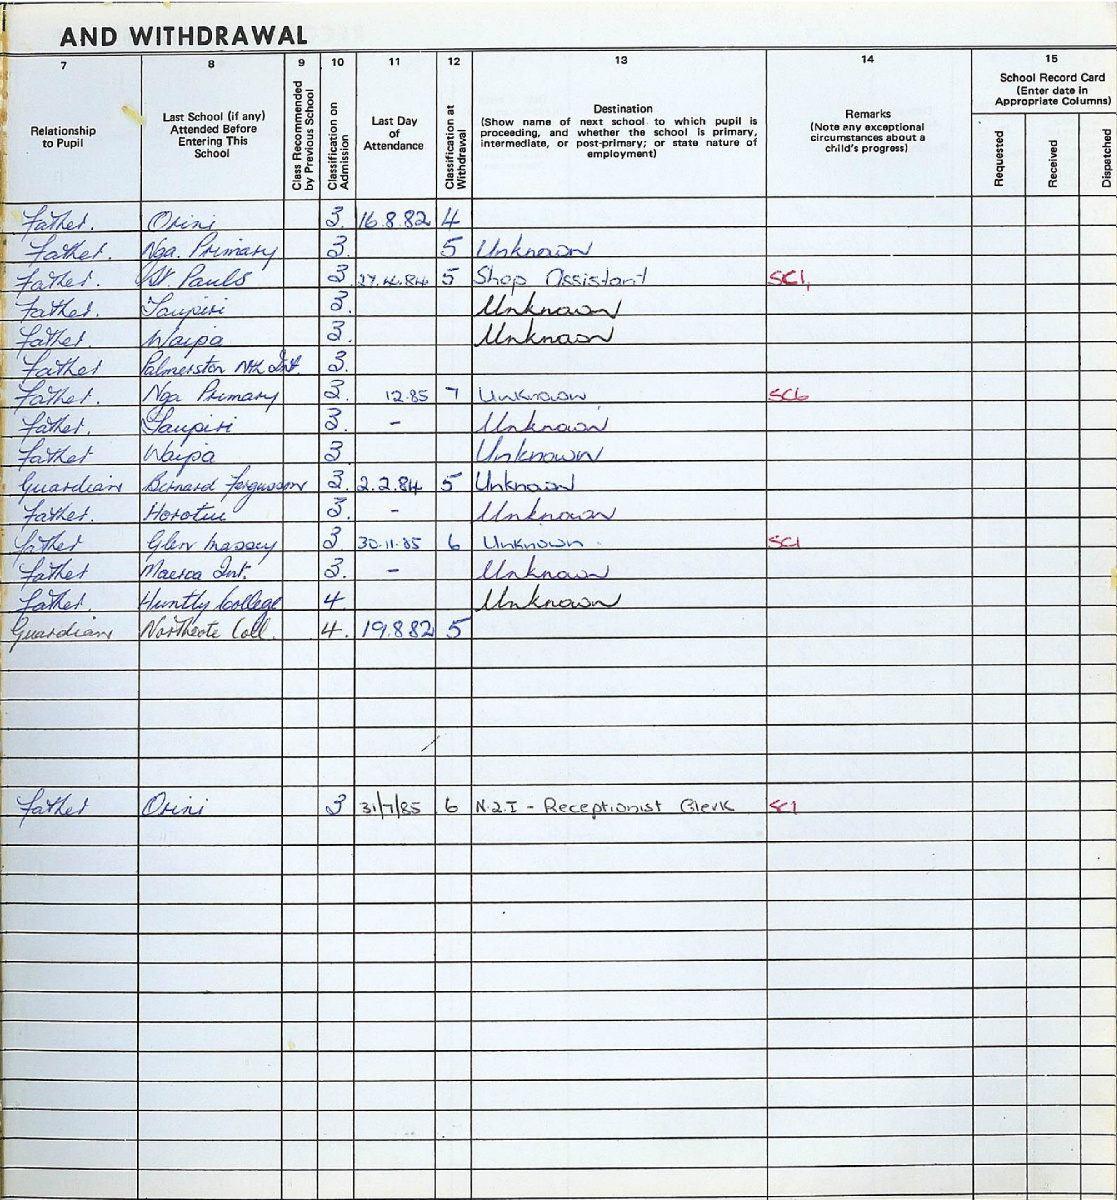 AND WITHDRAWAL
7 8 9 10 11 12 13 14 15
Relationship to Pupil
Last School (if any) Attended Before Entering This School
Class Recommended by Previous School
Classification on Admission
Last Day of Attendance
Classification at Withdrawal
Destination
(Show name of next school to which pupil is proceeding, and whether the school is primary, intermediate, or post-primary; or state nature of employment)
Remarks
(Note any exceptional circumstances about a child's progress)
School Record Card
(Enter date in Appropriate Columns)
Requested
Received
Dispatched
Father. Orini 3. 16.8.82 4
Father. Nga. Primary 3. 5 Unknown
Father. St. Pauls 3. 27.4.84 5 Shop Assistant SC1,
Father. Taupiri 3. Unknown
Father. Waipa 3. Unknown
Father Palmerston Nth Int. 3.
Father. Nga Primary 3. 12.85 7 Unknown SC6
Father. Taupiri 3. - Unknown
Father Waipa 3 Unknown
Guardian Bernard Fergusson 3. 2.2.84 5 Unknown
Father. Horotiu 3. - Unknown
Father Glen Massey 3 30.11.85 6 Unknown SC1
Father Maeroa Int. 3. - Unknown
Father. Huntly College 4. Unknown
Guardian Northcote Coll. 4. 19.8.82 5
Father Orini 3 31/7/85 6 N.Z.I - Receptionist Clerk SC1